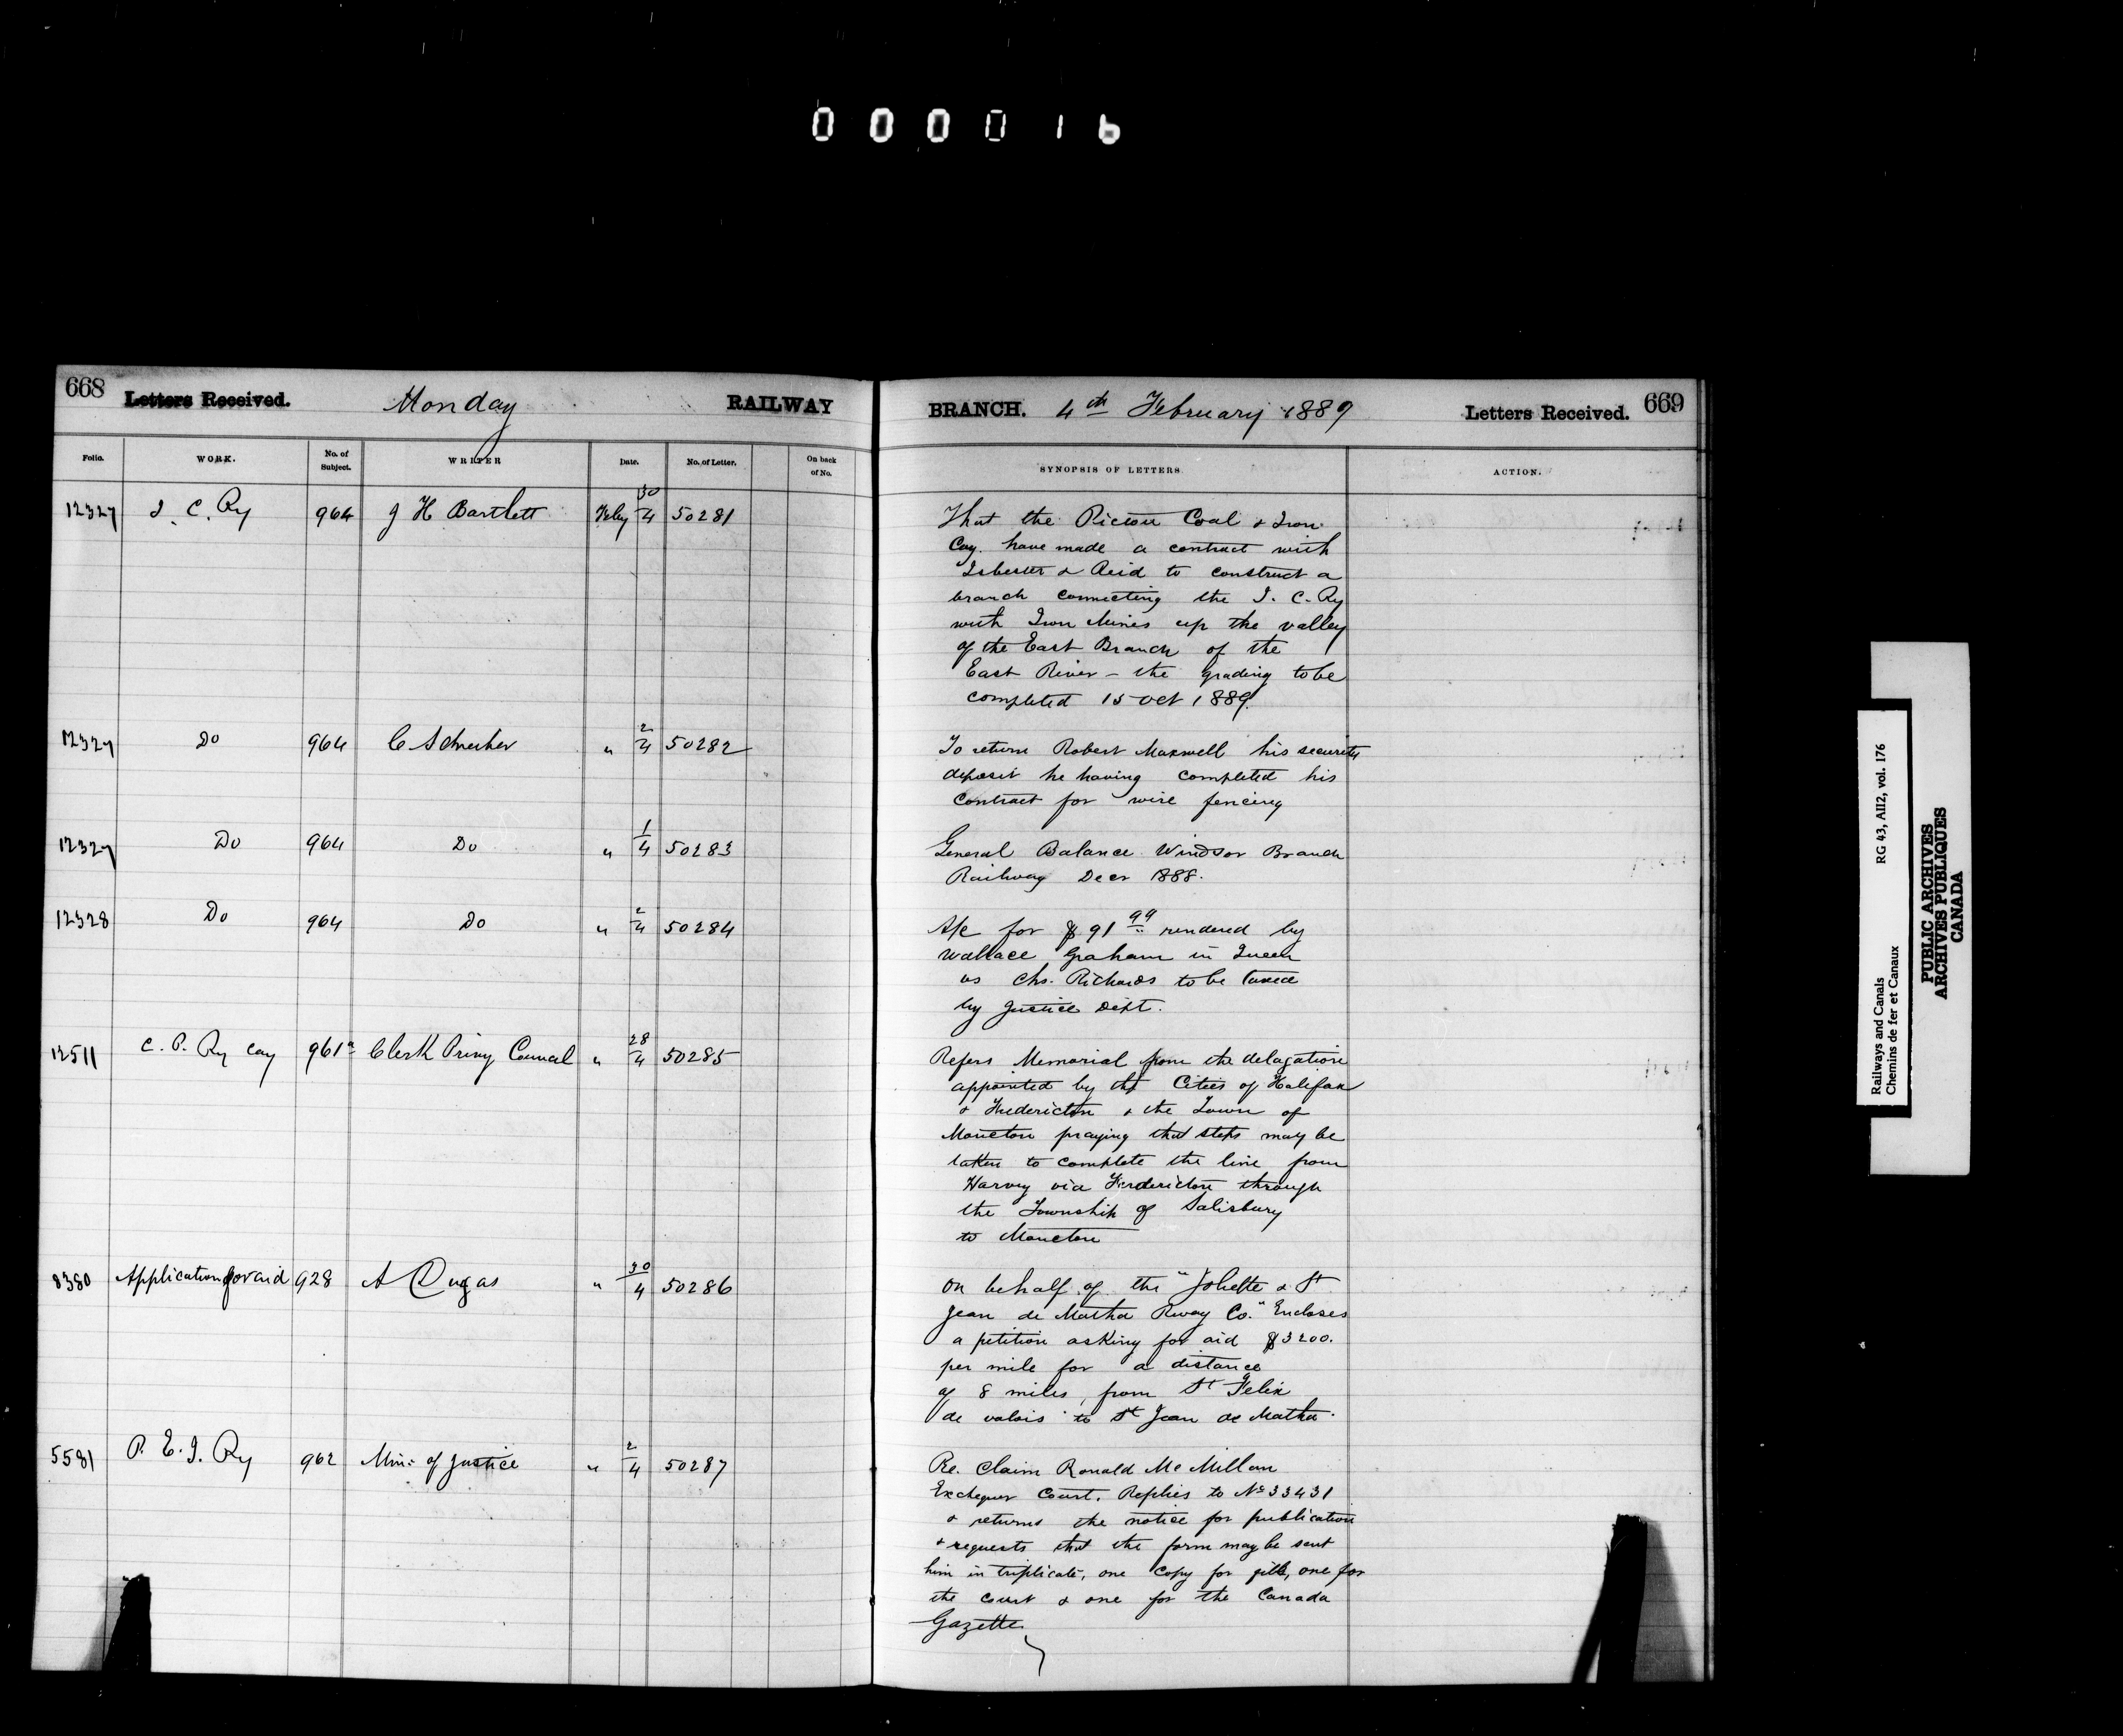 0 0 0 0 1 6
668 Letters Received. Monday RAILWAY
BRANCH. 4th February 1889 Letters Received. 669
Folio. WORK. No. of Subject. WRITER Date. No. of Letter. On back of No.
SYNOPSIS OF LETTERS ACTION.
12327 I. C. Ry 964 J H Bartlett Feby 30/4 50281
That the Pictou Coal & Iron
Coy. have made a contract with
Isbester & Reid to construct a
branch connecting the I. C. Ry
with Iron Mines up the valley
of the East Branch of the
East River - the grading to be
completed 15 Oct 1889.
12327 Do 964 C Schreiber " 2/4 50282
To return Robert Maxwell his security
deposit he having completed his
contract for wire fencing
12327 Do 964 Do " 1/4 50283
General Balance Windsor Branch
Railway Decr 1888.
12328 Do 964 Do " 2/4 50284
A/c for $91 99 rendered by
Wallace Graham in Queen
vs Chs. Richards to be taxed
by Justice Dept.
12511 C. P. Ry Coy 961a Clerk Privy Council " 28/4 50285
Refers Memorial from the delagation
appointed by the Cities of Halifax
& Fredericton & the Town of
Moncton praying that steps may be
taken to complete the line from
Harvey via Fredericton through
the Township of Salisbury
to Moncton
8380 Application for aid 928 A Dugas " 30/4 50286
On behalf of the "Joliette & St
Jean de Matha Rway Co." Encloses
a petition asking for aid $3200.
per mile for a distance
of 8 miles, from St Felix
de valois to St Jean de Matha.
5581 P. E. I. Ry 962 Min: of Justice " 2/4 50287
Re. Claim Ronald Mc Millan
Exchequer Court. Replies to No 33431
& returns the notice for publication
& requests that the form may be sent
him in triplicate, one copy for one for
the Court & one for the Canada
Gazette
Railways and Canals RG 43, AII2, vol. 176
Chemins de fer et Canaux
PUBLIC ARCHIVES
ARCHIVES PUBLIQUES
CANADA